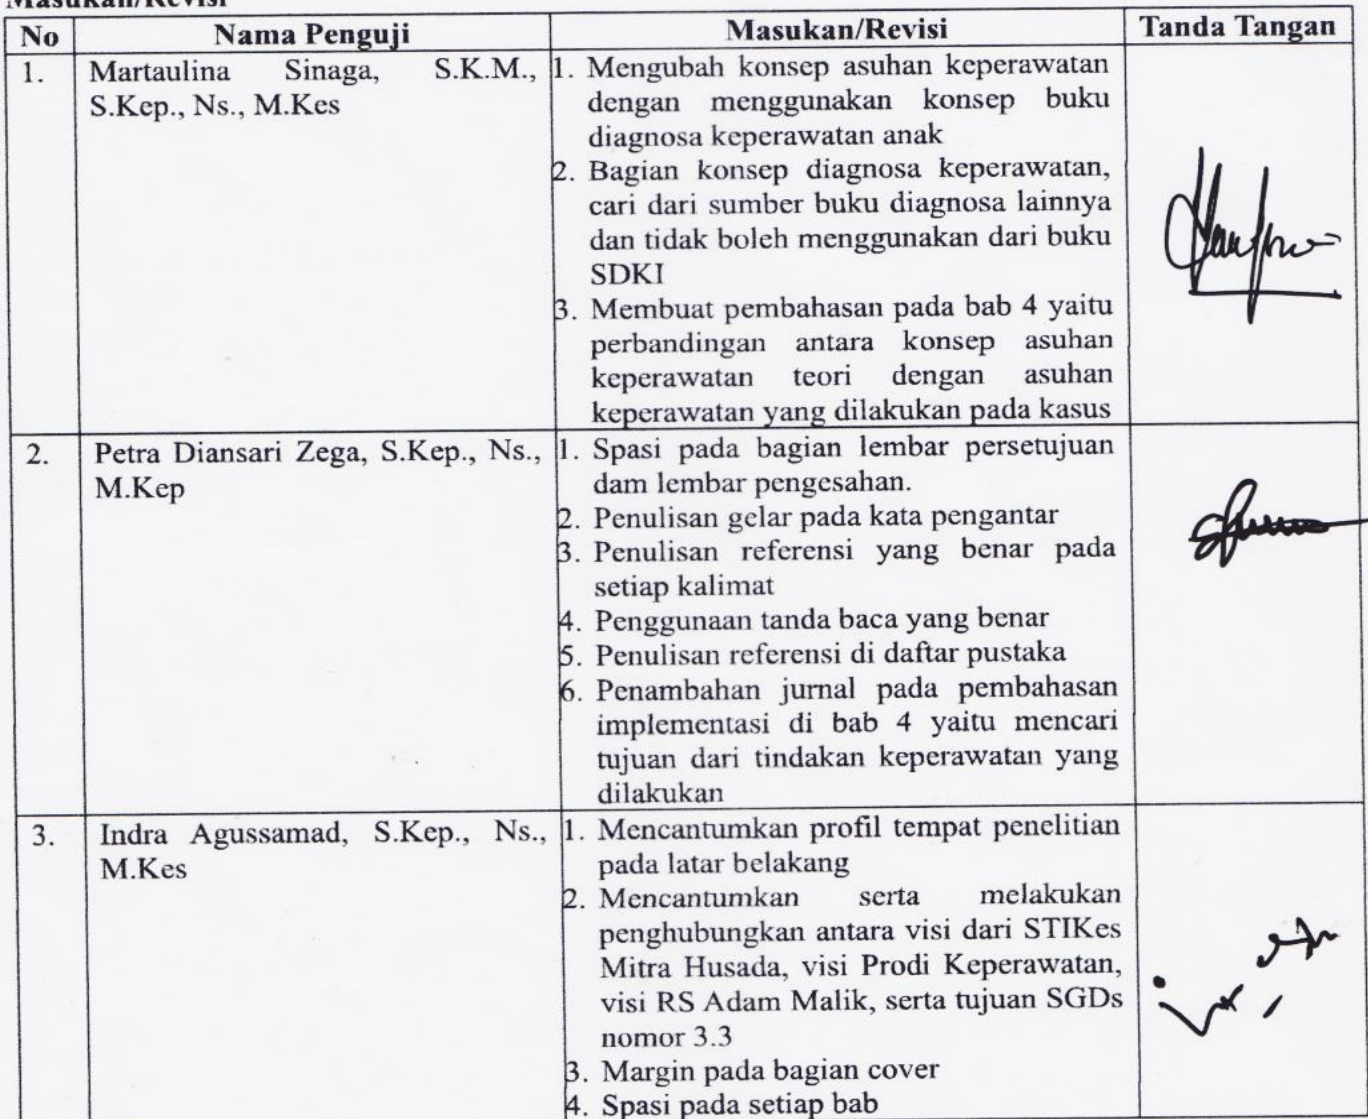 Masukan/Revisi
No Nama Penguji Masukan/Revisi Tanda Tangan
1. Martaulina Sinaga, S.K.M.,
S.Kep., Ns., M.Kes
1. Mengubah konsep asuhan keperawatan
dengan menggunakan konsep buku
diagnosa keperawatan anak
2. Bagian konsep diagnosa keperawatan,
cari dari sumber buku diagnosa lainnya
dan tidak boleh menggunakan dari buku
SDKI
3. Membuat pembahasan pada bab 4 yaitu
perbandingan antara konsep asuhan
keperawatan teori dengan asuhan
keperawatan yang dilakukan pada kasus
2. Petra Diansari Zega, S.Kep., Ns.,
M.Kep
1. Spasi pada bagian lembar persetujuan
dam lembar pengesahan.
2. Penulisan gelar pada kata pengantar
3. Penulisan referensi yang benar pada
setiap kalimat
4. Penggunaan tanda baca yang benar
5. Penulisan referensi di daftar pustaka
6. Penambahan jurnal pada pembahasan
implementasi di bab 4 yaitu mencari
tujuan dari tindakan keperawatan yang
dilakukan
3. Indra Agussamad, S.Kep., Ns.,
M.Kes
1. Mencantumkan profil tempat penelitian
pada latar belakang
2. Mencantumkan serta melakukan
penghubungkan antara visi dari STIKes
Mitra Husada, visi Prodi Keperawatan,
visi RS Adam Malik, serta tujuan SGDs
nomor 3.3
3. Margin pada bagian cover
4. Spasi pada setiap bab